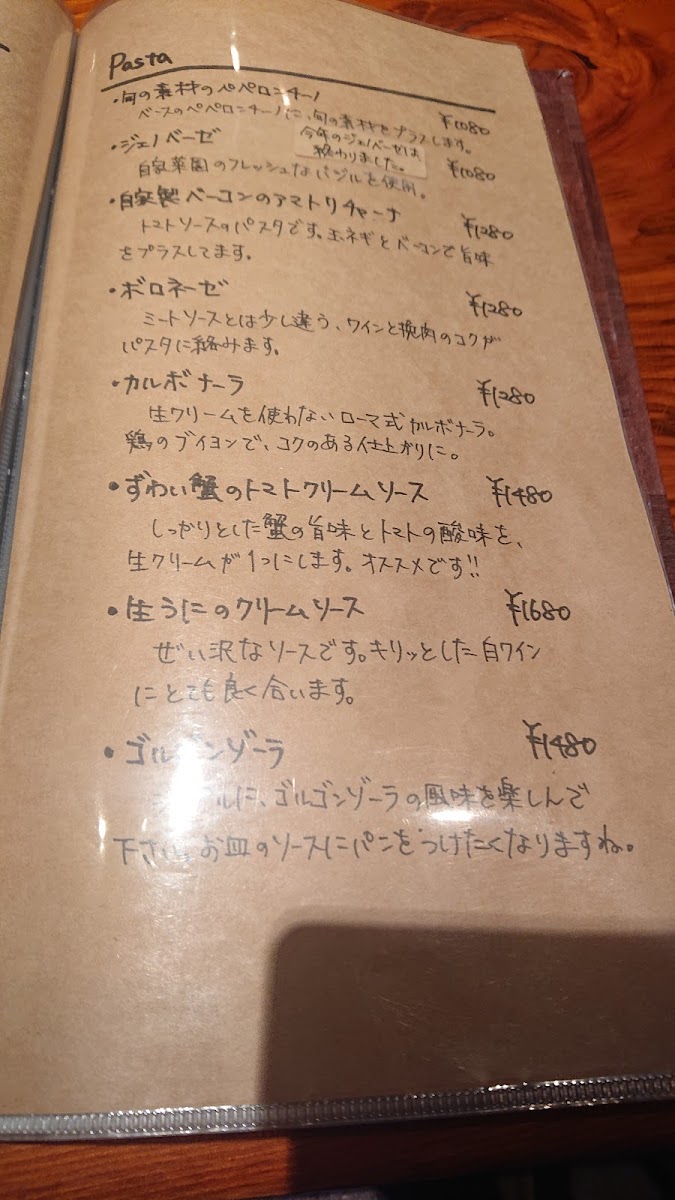 Pasta
・旬の素材のペペロンチーノ ¥1080
ベースのペペロンチーノに、旬の素材をプラスします。
・ジェノベーゼ 今年のジェノベーゼは、終わりました。 ¥1080
自家菜園のフレッシュなバジルを使用。
・自家製ベーコンのアマトリチャーナ ¥1280
トマトソースのパスタです。玉ネギとベーコンで旨味
をプラスしてます。
・ボロネーゼ ¥1280
ミートソースとは少し違う、ワインと挽肉のコクが
パスタに絡みます。
・カルボナーラ ¥1280
生クリームを使わないローマ式カルボナーラ。
鶏のブイヨンで、コクのある仕上がりに。
・ずわい蟹のトマトクリームソース ¥1480
しっかりとした蟹の旨味とトマトの酸味を、
生クリームが1つにします。オススメです!!
・生うにのクリームソース ¥1680
ぜい沢なソースです。キリッとした白ワイン
にとても良く合います。
・ゴルゴンゾーラ ¥1480
ルに、ゴルゴンゾーラの風味を楽しんで
下さい。お皿のソースにパンをつけたくなりますね。